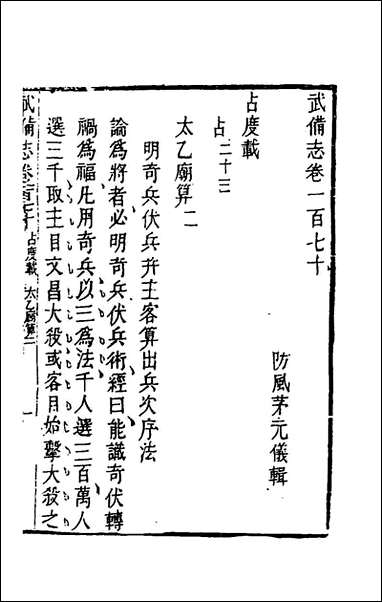 武備志卷一百七十
防風茅元儀輯
占度載
占二十三
太乙廟算二
明奇兵伏兵幷主客算出兵次序法
論為將者必明奇兵伏兵術經曰能識奇伏轉
禍為福凡用奇兵以三為法千人選三百萬人
選三千取主目文昌大殺或客目始擊大殺之
武備志卷一百七十 占度載 太乙廟算二 一